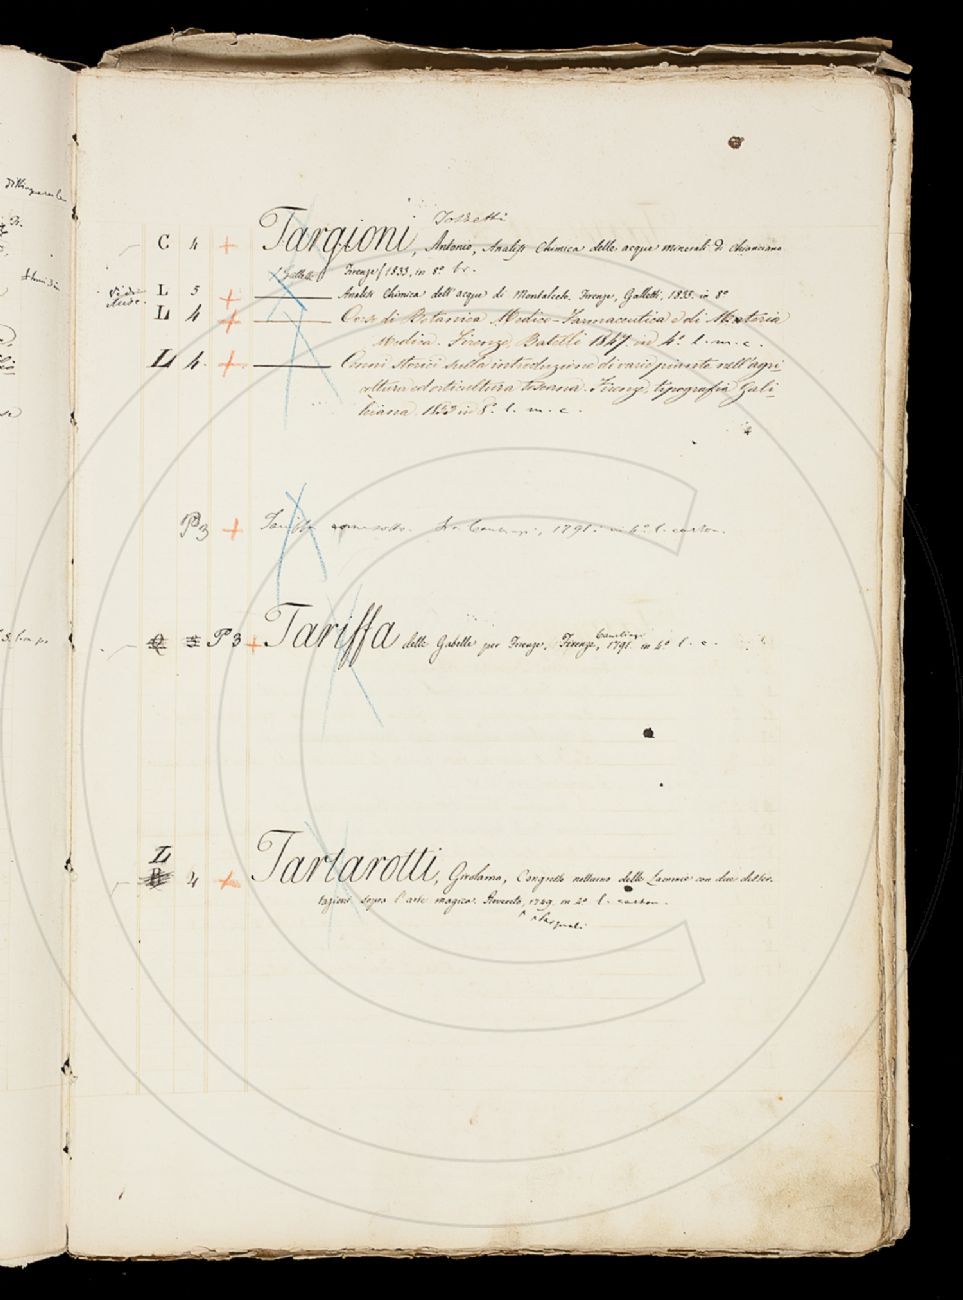 Tozzetti
C 4 + Targioni, Antonio, Analisi Chimica delle acque minerali di Chianciano
Galletti Firenze 1833, in 8° l. c.
L 5 + Analisi Chimica dell'acque di Montalceto. Firenze, Galletti, 1835. in 8°
L 4 + Corso di Botanica Medico-Farmaceutica e di Materia
Medica. Firenze, Batelli 1847. in 4° l. m. c.
L 4. + Cenni storici sulla introduzione di varie piante nell'agri-
coltura ed orticultura toscana. Firenze, tipografia Gali-
leiana 1853 in 8° l. m. c.
P 3 + Tariffa come sotto. Cambiagi, 1791. in 4° l. carton.
Cambiagi
P 3 + Tariffa delle Gabelle per Firenze. Firenze, 1791. in 4° l. c.
L
4 + Tartarotti, Girolamo, Congresso notturno delle Lammie con due disser-
tazioni sopra l'arte magica. Rovereto, 1749. in 4° l. carton.
Pasquali